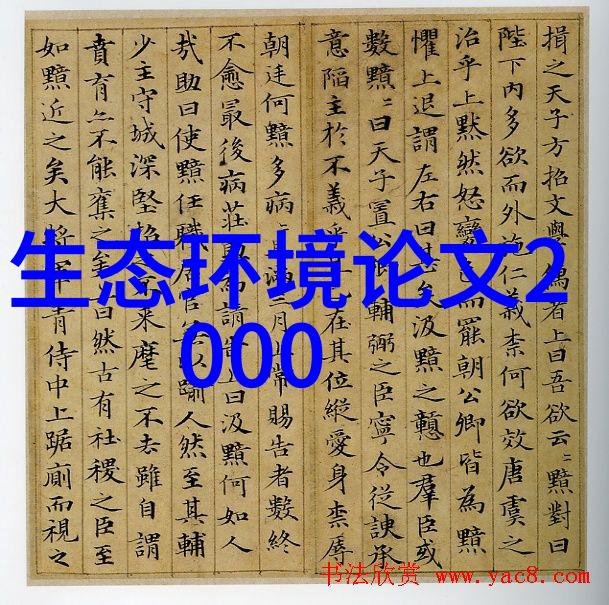 損之天子方招文學儒者上曰吾欲云〻黯對曰
陛下内多欲而外施仁義柰何欲效唐虞之
治乎上默然怒變色而罷朝公卿皆為黯
懼上退謂左右曰甚矣汲黯之戇也羣臣或
數黯〻曰天子置公卿輔弼之臣寧令從諛承
意陷主於不義乎在其位縱愛身柰辱
朝廷何黯多病且滿三月上常賜告者數終
不愈最後病莊助為請告上曰汲黯何如人
哉助曰使黯任職居官無以踰人然至其輔
少主守城深堅招之不來麾之不去雖自謂
賁育亦不能奪之矣上曰然古有社稷之臣至
如黯近之矣大將軍青侍中上踞廁而視之
生态环境论文2
000
书法欣赏 www.yac8.com